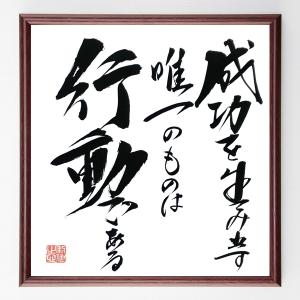 成功を生み出す
唯一のものは
行動である